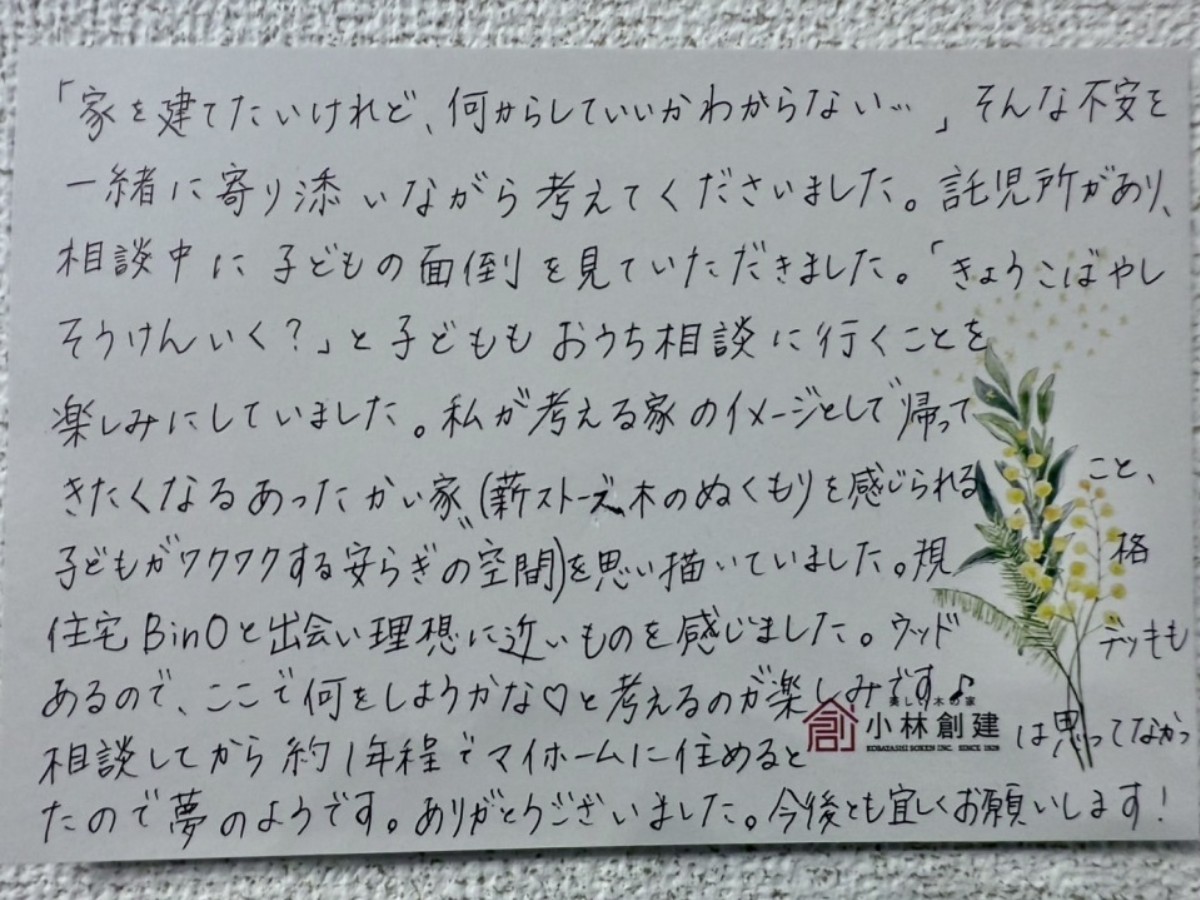 「家を建てたいけれど、何からしていいかわからない…」そんな不安を
一緒に寄り添いながら考えてくださいました。託児所があり、
相談中に子どもの面倒を見ていただきました。「きょうこばやし
そうけんいく?」と子どももおうち相談に行くことを
楽しみにしていました。私が考える家のイメージとして“帰って
きたくなるあったかい家”(薪ストーブ、木のぬくもりを感じられること、
子どもがワクワクする安らぎの空間)を思い描いていました。規格
住宅BinOと出会い理想に近いものを感じました。ウッドデッキも
あるので、ここで何をしようかな♡と考えるのが楽しみです♪
相談してから約1年程でマイホームに住めるとは思ってなかっ
たので夢のようです。ありがとうございました。今後とも宜しくお願いします!
美しい木の家
創 小林創建
KOBAYASHI SOKEN INC. SINCE 1829